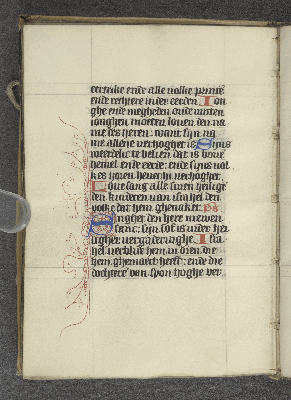 eertrike ende alle volke prince
ende rechtere inder eerden. Ion
ghe ende megheden oude metten
ionghen moeten louen den na
me des heren: want sijn na
me allene verhoghet is Sijns
weerdich te belien dat is bouē
hemel ende eerde: ende sijns vol
kes horen heueth verhoghet
Loue sang alle sinen heilige
den kinderen van israhel den
volke dat hem ghenaket. Ps
Singhet den here niewen
sanc: sijn lof is inder hei
ligher vergaderinghe Isra
hel verblide hem in dien die
hem ghemaect heeft: ende die
dochtere van syon hoghe ver